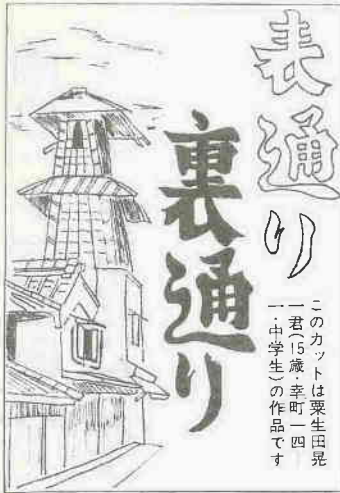 表通り
裏通り
このカットは粟生田晃
一君(15歳・幸町一四
一・中学生)の作品です